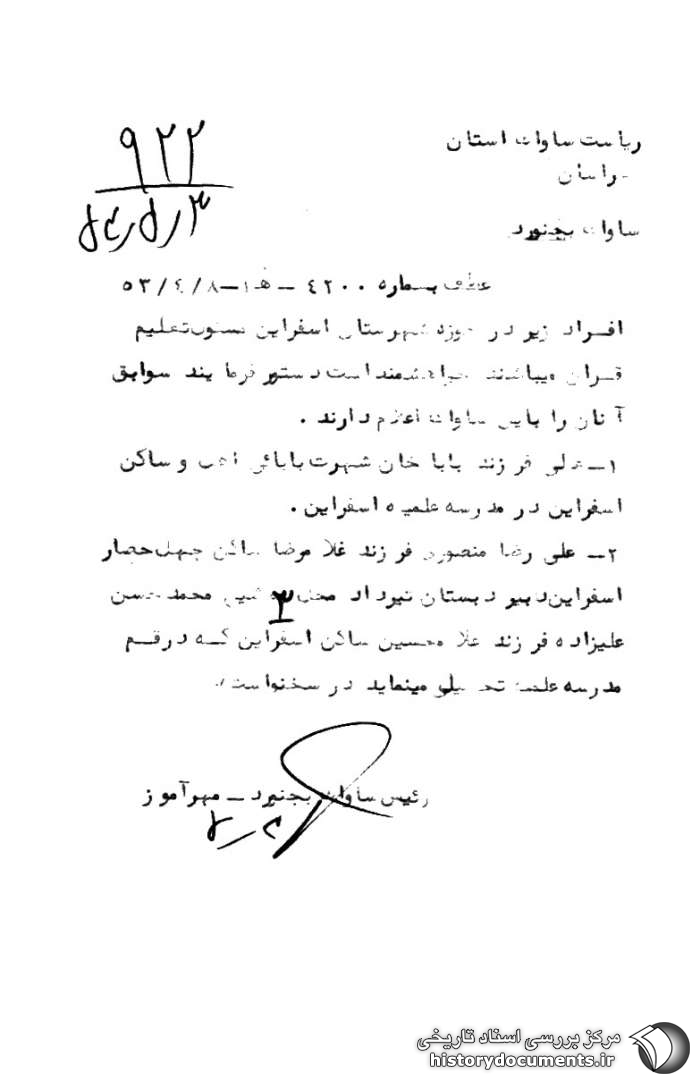 ۹۲۲
ریاست ساواک استان
خراسان
ساواک بجنورد
عطف بشماره ۴۲۰۰ – ه‍ ۱–
افراد زیر در حوزه شهرستان اسفراین تعلیم
قران میباشند خواهشمند است دستور فرمایند سوابق
آنان را باین ساواک اعلام دارند .
۱– علی فرزند بابا خان شهرت بابائی اهل و ساکن
اسفراین در مدرسه علمیه اسفراین .
۲– علی رضا منصوری فرزند غلامرضا ساکن چهل حصار
اسفراین دبیر دبستان ۳ شیخ محمد حسن
علیزاده فرزند غلامحسین ساکن اسفراین که در قم
مدرسه علمیه مینماید در
رئیس ساواک بجنورد – مهرآموز
مرکز بررسی اسناد تاریخی
historydocuments.ir